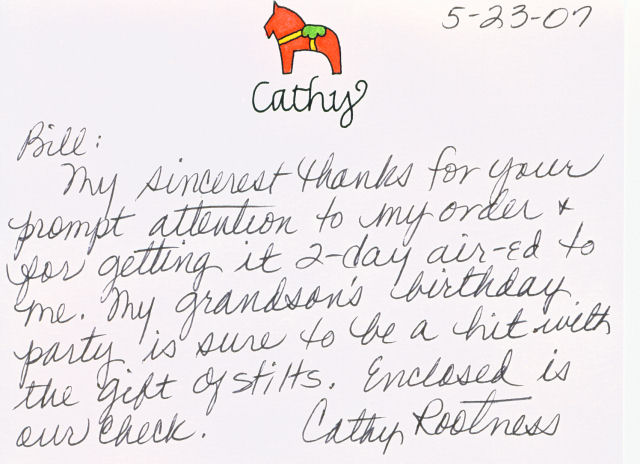 5-23-07
Cathy
Bill:
My sincerest thanks for your
prompt attention to my order &
for getting it 2-day air-ed to
me. My grandson's birthday
party is sure to be a hit with
the gift of stilts. Enclosed is
our check. Cathy Rootness